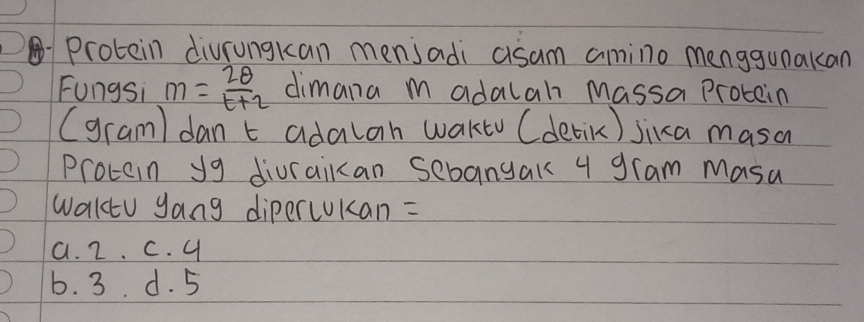 8. Protein diurungkan menjadi asam amino menggunakan
Fungsi m = 28/t+2 dimana m adalah massa Protein
(gram) dan t adalah waktu (detik) jika masa
Protein yg diuraikan sebanyak 4 gram Masa
waktu yang diperlukan =
a. 2 . c. 4
b. 3 . d. 5